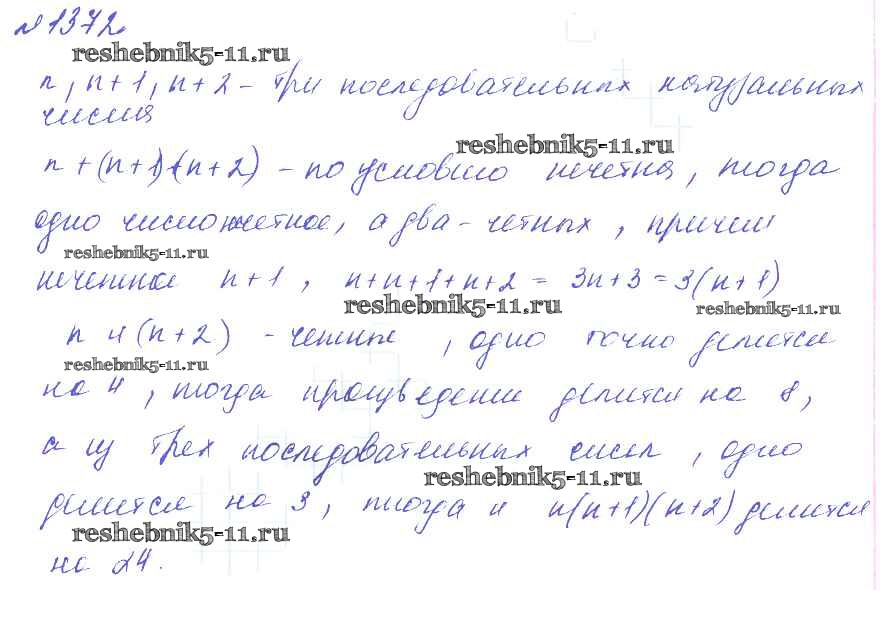 №1372
reshebnik5-11.ru
n, n+1, n+2 - три последовательных натуральных
числа
reshebnik5-11.ru
n + (n+1)+(n+2) - по условию нечетна, тогда
одно число нечетное, а два - четных, причем
reshebnik5-11.ru
нечетное n+1, n+n+1+n+2 = 3n+3 = 3(n+1)
reshebnik5-11.ru reshebnik5-11.ru
n и (n+2) - четные, одно точно делится
reshebnik5-11.ru
на 4, тогда произведение делится на 8,
а из трех последовательных чисел, одно
reshebnik5-11.ru
делится на 3, тогда и n(n+1)(n+2) делится
reshebnik5-11.ru
на 24.